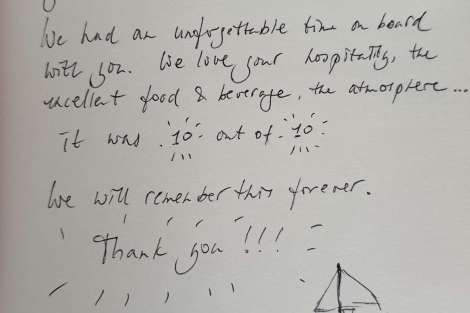 We had an unforgettable time on board
with you. We love your hospitality, the
excellent food & beverage, the atmosphere...
it was 10 out of 10
We will remember this forever.
Thank you !!!